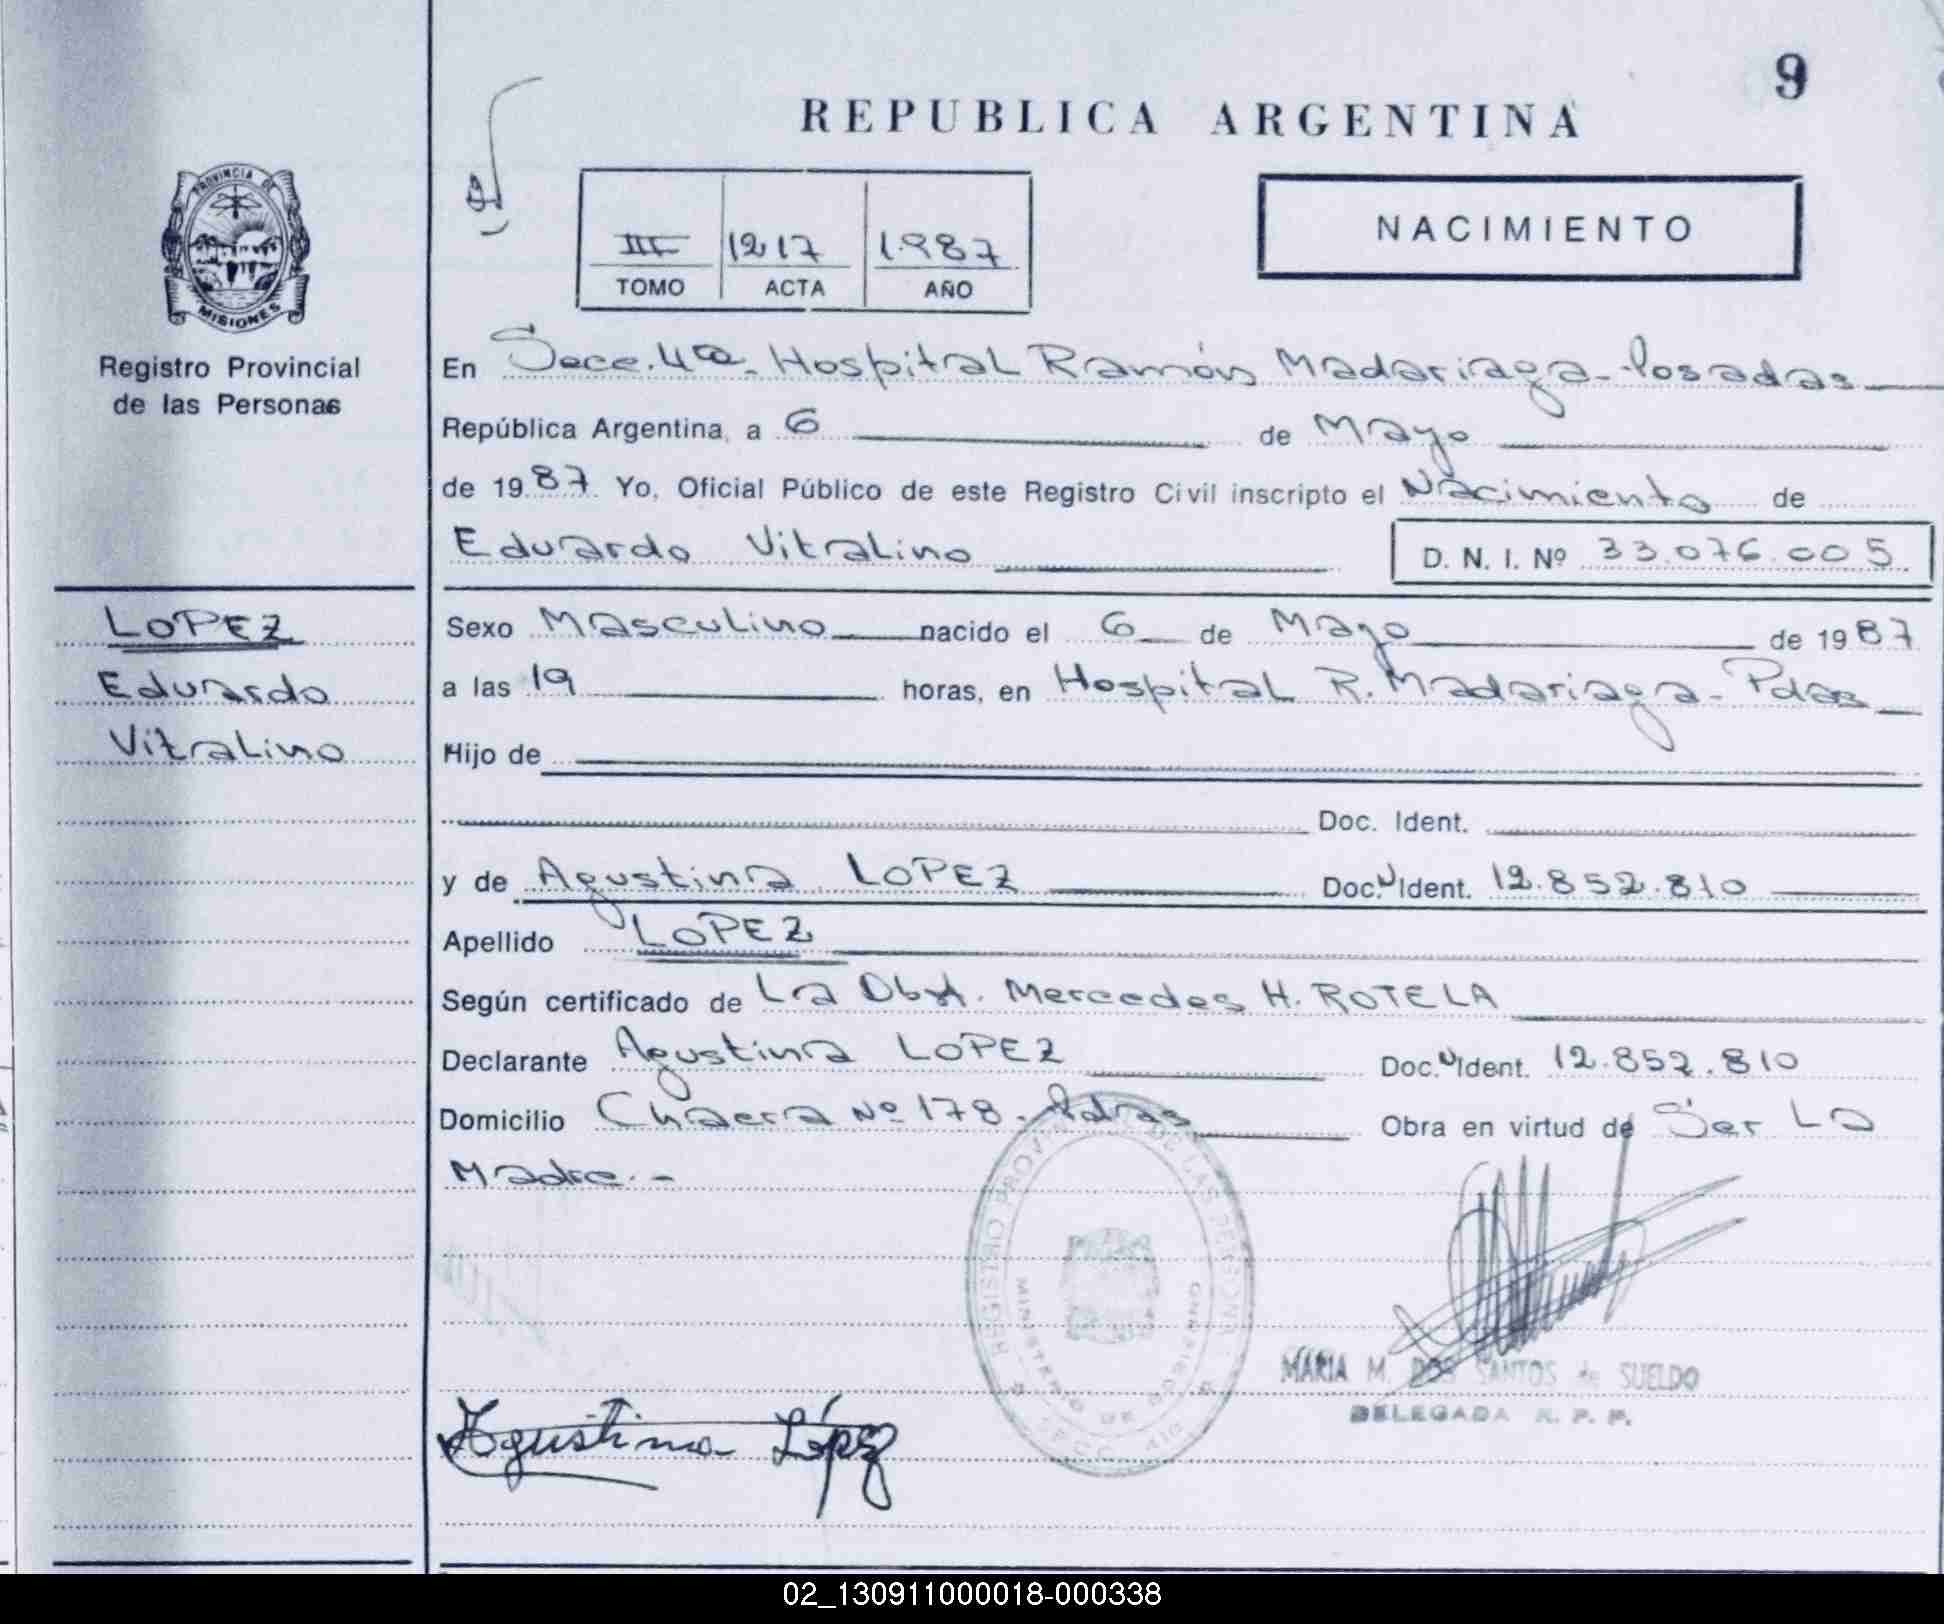 9
REPUBLICA ARGENTINA
PROVINCIA DE
MISIONES
III 1217 1.987
TOMO ACTA AÑO
NACIMIENTO
Registro Provincial
de las Personas
En Secc. 4a. Hospital Ramón Madariaga - Posadas
República Argentina, a 6 de Mayo
de 1987. Yo, Oficial Público de este Registro Civil inscripto el Nacimiento de
Eduardo Vitalino D. N. I. Nº 33.076.005
LOPEZ
Eduardo
Vitalino
Sexo Masculino nacido el 6 de Mayo de 1987
a las 19 horas, en Hospital R. Madariaga - Pdas
Hijo de
Doc. Ident.
y de Agustina LOPEZ Doc. Ident. 12.852.810
Apellido LOPEZ
Según certificado de La Obst. Mercedes H. ROTELA
Declarante Agustina LOPEZ Doc. Ident. 12.852.810
Domicilio Chacra Nº 178 - Pdas Obra en virtud de Ser La
Madre. -
REGISTRO PROVINCIAL DE LAS PERSONAS
MINISTERIO DE GOBIERNO
MARIA M. DOS SANTOS de SUELDO
DELEGADA R. P. P.
Agustina López
02_130911000018-000338